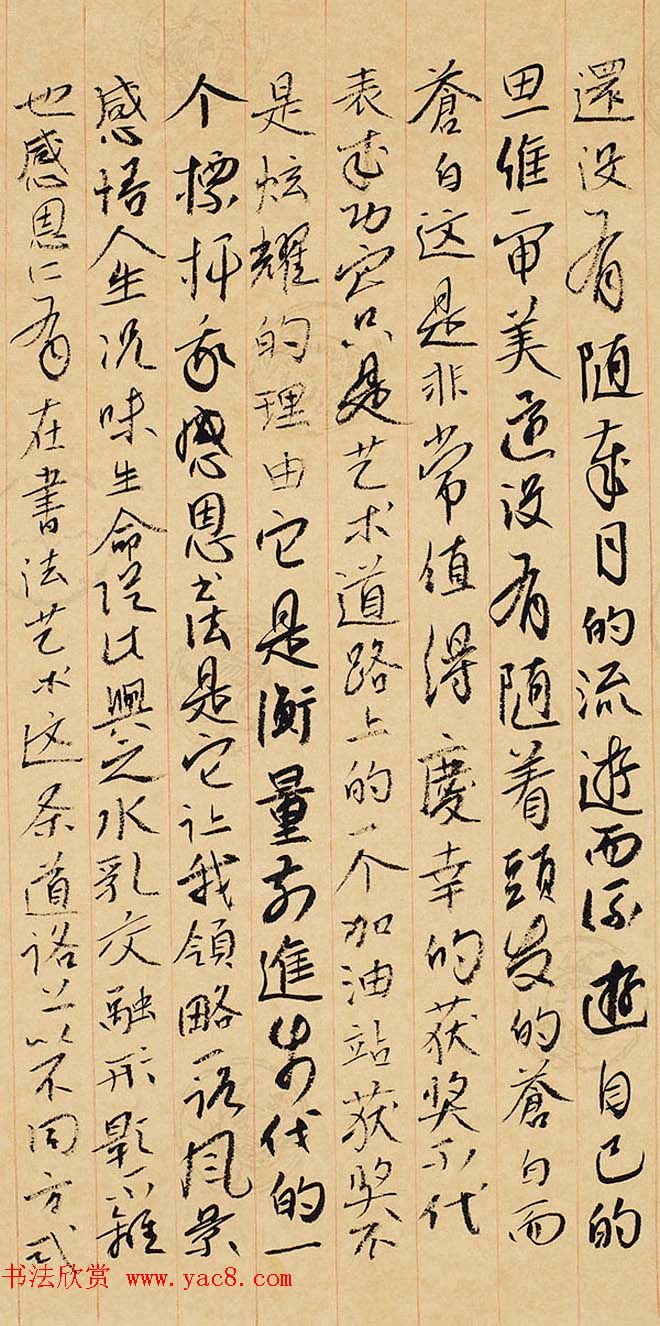 還没有随年月的流逝而流逝自己的
思维审美還没有随着頭发的蒼白而
蒼白这是非常值得慶幸的获奖不代
表成功它只是艺术道路上的一个加油站获奖不
是炫耀的理由它是衡量前進步伐的一
个標杆我感恩书法是它让我領略一路风景
感悟人生况味生命從此與之水乳交融形影不離
也感恩仁有在書法艺术这条道路上以不同方式
书法欣赏 www.yac8.com